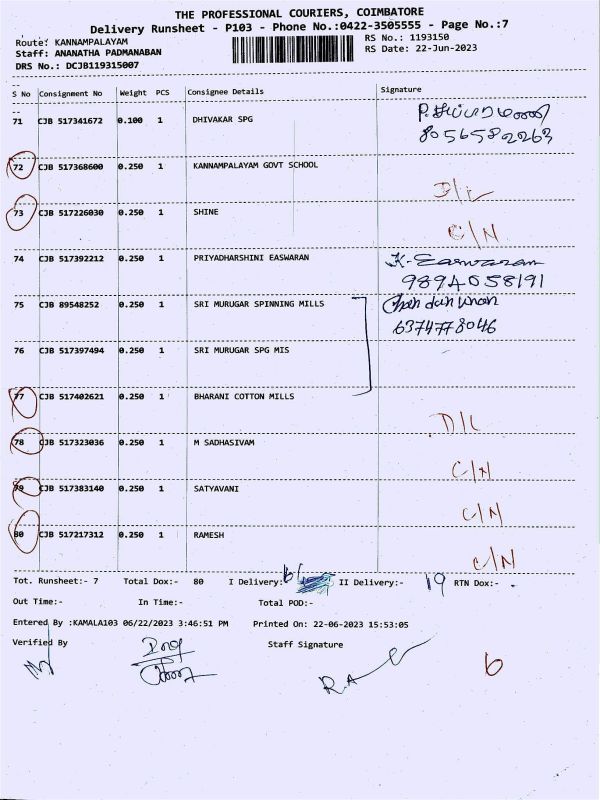 THE PROFESSIONAL COURIERS, COIMBATORE
Delivery Runsheet - P103 - Phone No.:0422-3505555 - Page No.:7
Route: KANNAMPALAYAM
RS No.: 1193150
Staff: ANANATHA PADMANABAN
RS Date: 22-Jun-2023
DRS No.: DCJB119315007
S No Consignment No Weight PCS Consignee Details Signature
71 CJB 517341672 0.100 1 DHIVAKAR SPG
8056582263
72 CJB 517368600 0.250 1 KANNAMPALAYAM GOVT SCHOOL
D/L
73 CJB 517226030 0.250 1 SHINE
C/N
74 CJB 517392212 0.250 1 PRIYADHARSHINI EASWARAN K. Easwaram
9894058191
75 CJB 89548252 0.250 1 SRI MURUGAR SPINNING MILLS
6374778046
76 CJB 517397494 0.250 1 SRI MURUGAR SPG MIS
77 CJB 517402621 0.250 1 BHARANI COTTON MILLS
D/L
78 CJB 517323036 0.250 1 M SADHASIVAM
C/N
79 CJB 517383140 0.250 1 SATYAVANI
C/N
80 CJB 517217312 0.250 1 RAMESH
C/N
Tot. Runsheet:- 7 Total Dox:- 80 I Delivery:- 61 II Delivery:- 19 RTN Dox:-
Out Time:- In Time:- Total POD:-
Entered By :KAMALA103 06/22/2023 3:46:51 PM Printed On: 22-06-2023 15:53:05
Verified By Staff Signature
R.A
6